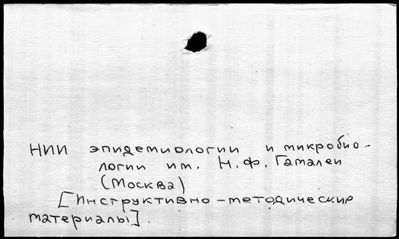 НИИ эпидемиологии и микробио-
логии им. Н.Ф. Гамалеи
(Москва)
[Инструктивно-методические
материалы].